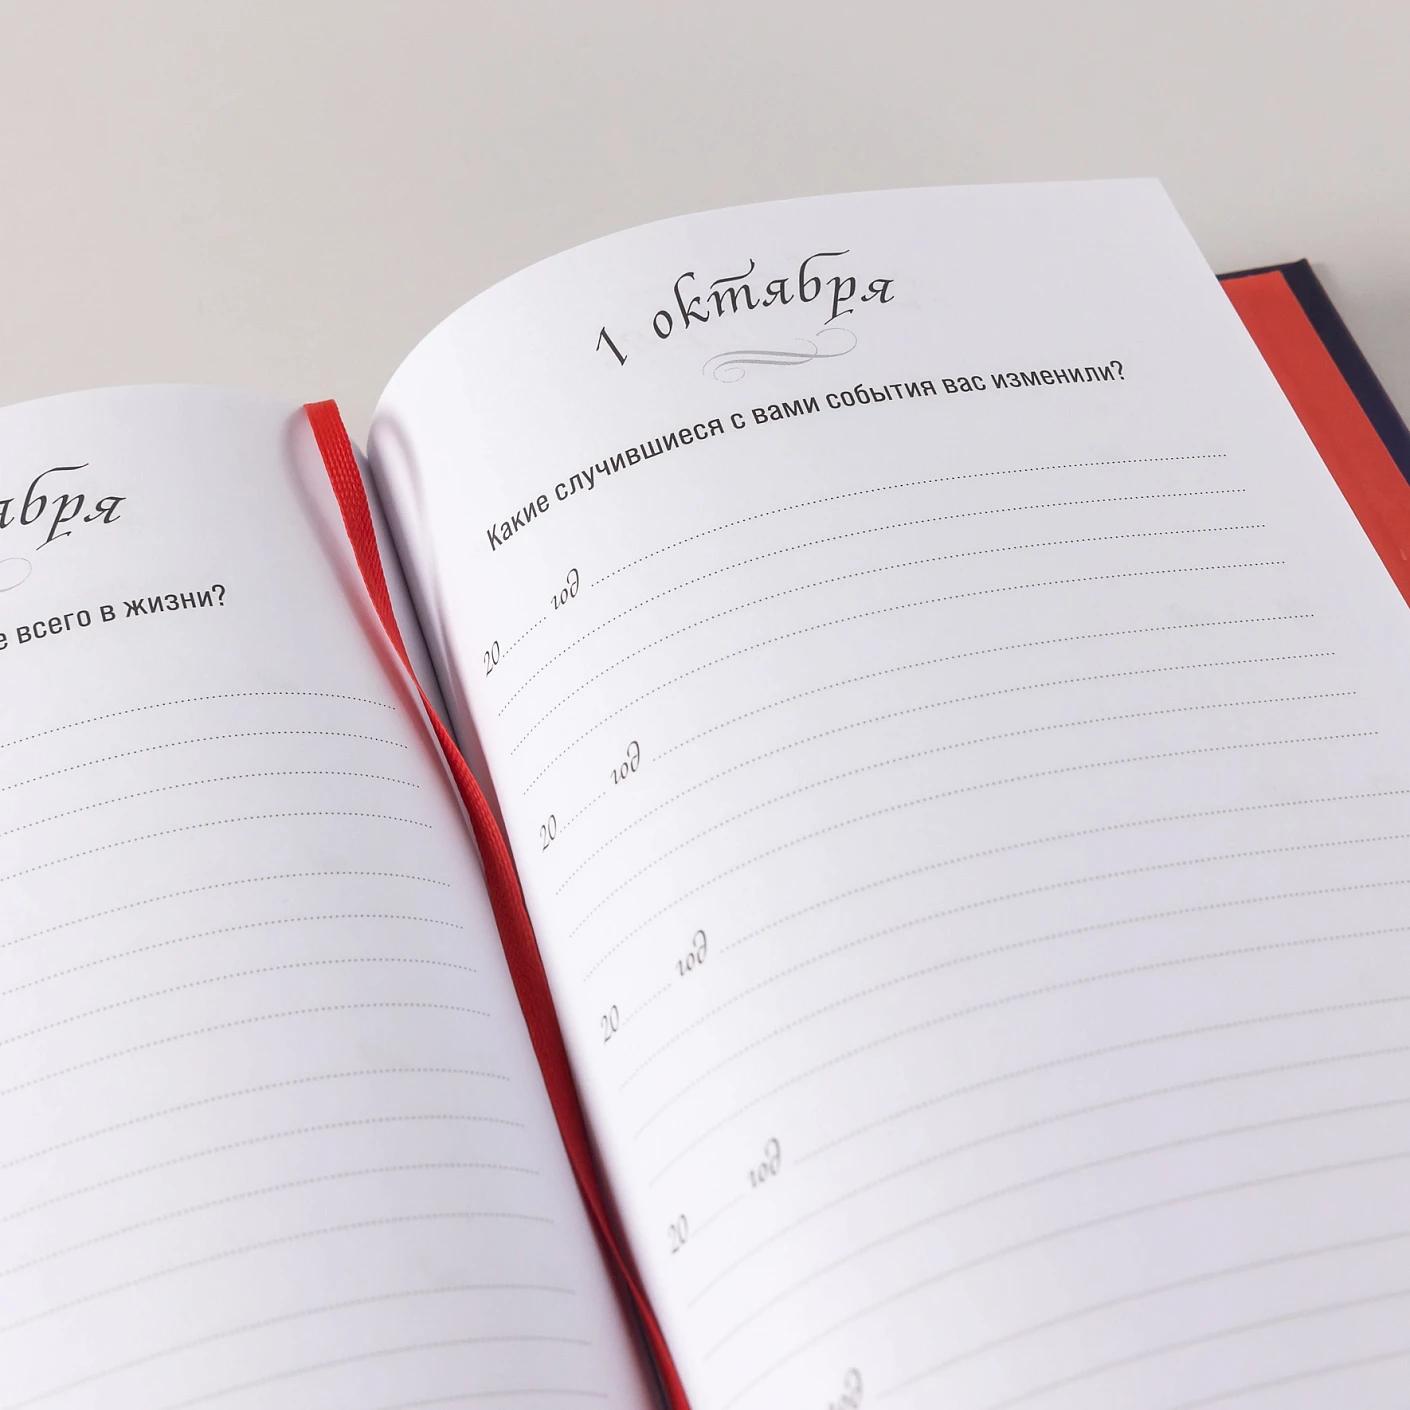 всего в жизни?
1 октября
Какие случившиеся с вами события вас изменили?
20 год
20 год
20 год
20 год